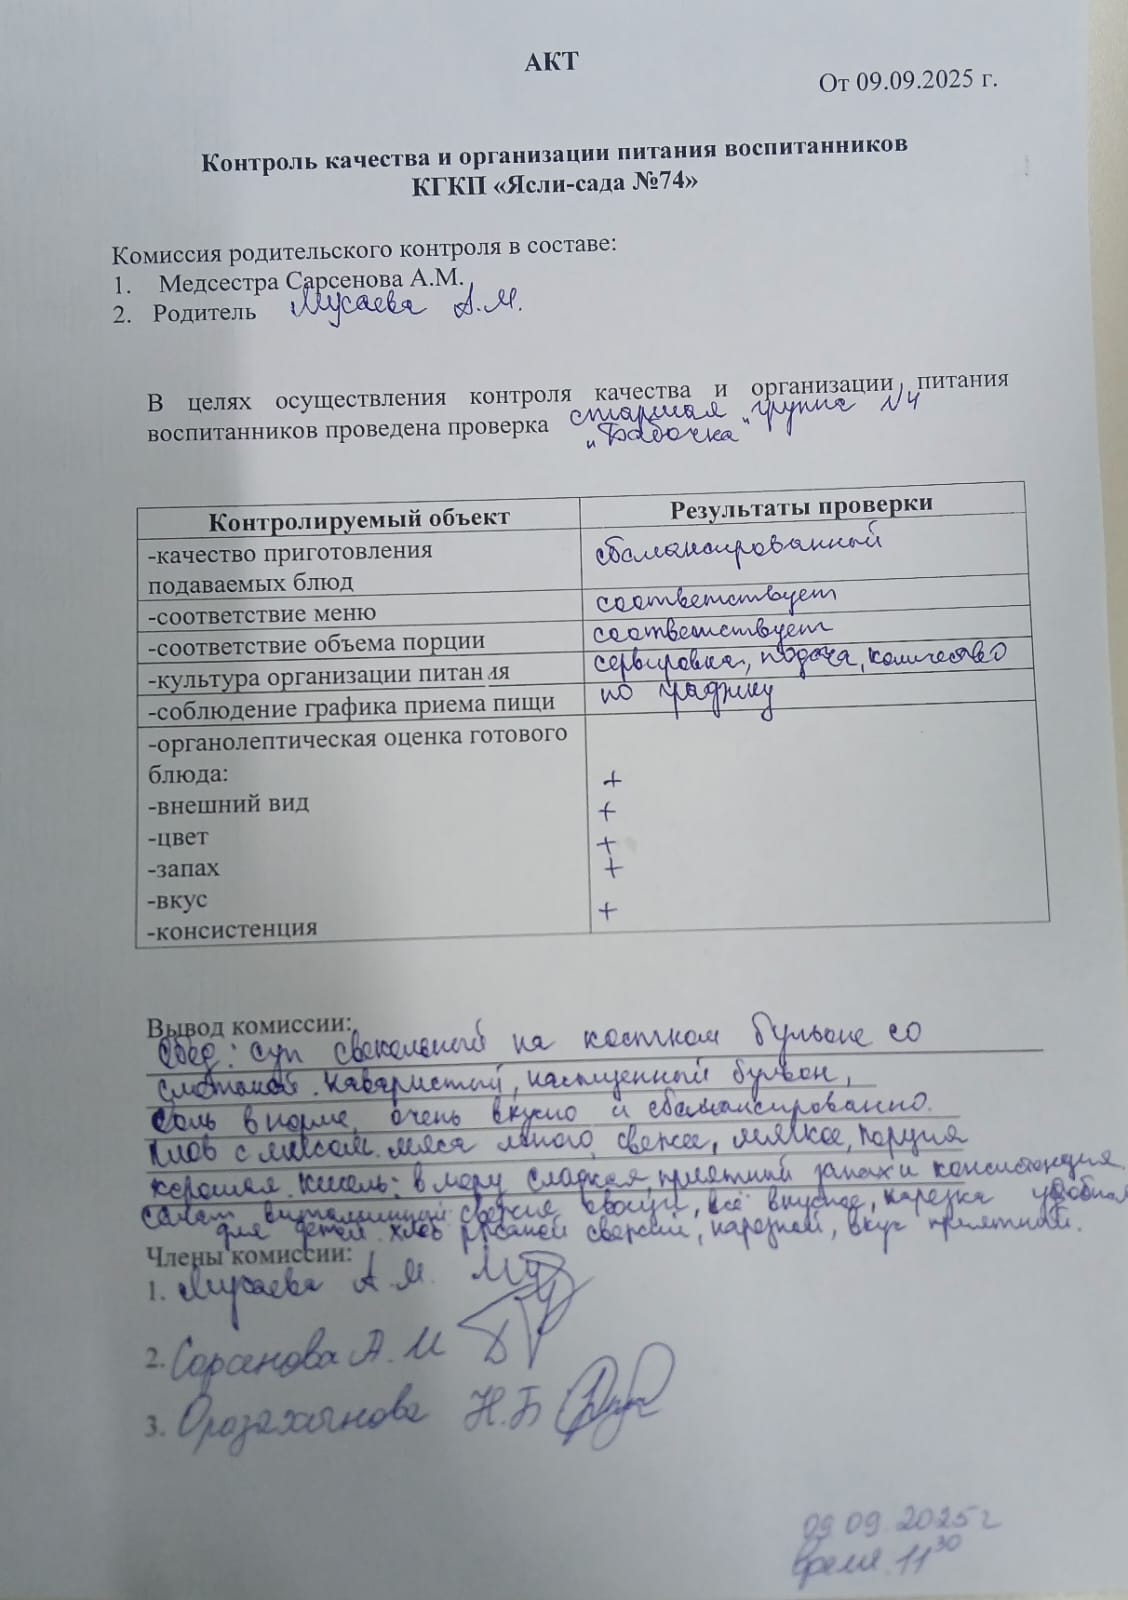 АКТ
От 09.09.2025 г.
Контроль качества и организации питания воспитанников
КГКП «Ясли-сада №74»
Комиссия родительского контроля в составе:
1. Медсестра Сарсенова А.М.
2. Родитель Мусаева А.М.
В целях осуществления контроля качества и организации питания
воспитанников проведена проверка старшая группа №4
"Бабочка"
Контролируемый объект Результаты проверки
-качество приготовления сбалансированный
подаваемых блюд
-соответствие меню соответствует
-соответствие объема порции соответствует
-культура организации питания сервировка, подача, количество
-соблюдение графика приема пищи по графику
-органолептическая оценка готового
блюда: +
-внешний вид +
-цвет +
-запах +
-вкус +
-консистенция
Вывод комиссии:
Обед: суп свекольный на костном бульоне со
сметаной. наваристый, насыщенный бульон,
соль в норме, очень вкусно и сбалансированно.
Плов с мясом. мяса много, свежее, мягкое, порция
хорошая. кисель: в меру сладкая, приятный запах и консистенция.
салат витаминный: свежие овощи, всё вкусное, нарезка удобная
для детей. хлеб ржаной свежий, нарезной, вкус приятный.
Члены комиссии:
1. Мусаева А.М.
2. Сарсенова А.М
3. Оразахынова Н.Б
09.09.2025г
время 11 30